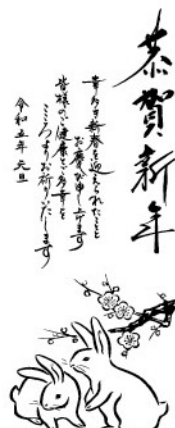 恭賀新年
幸多き新春を迎えられたことと
お慶び申し上げます
皆様のご健康とご多幸を
こころよりお祈りいたします
令和五年 元旦